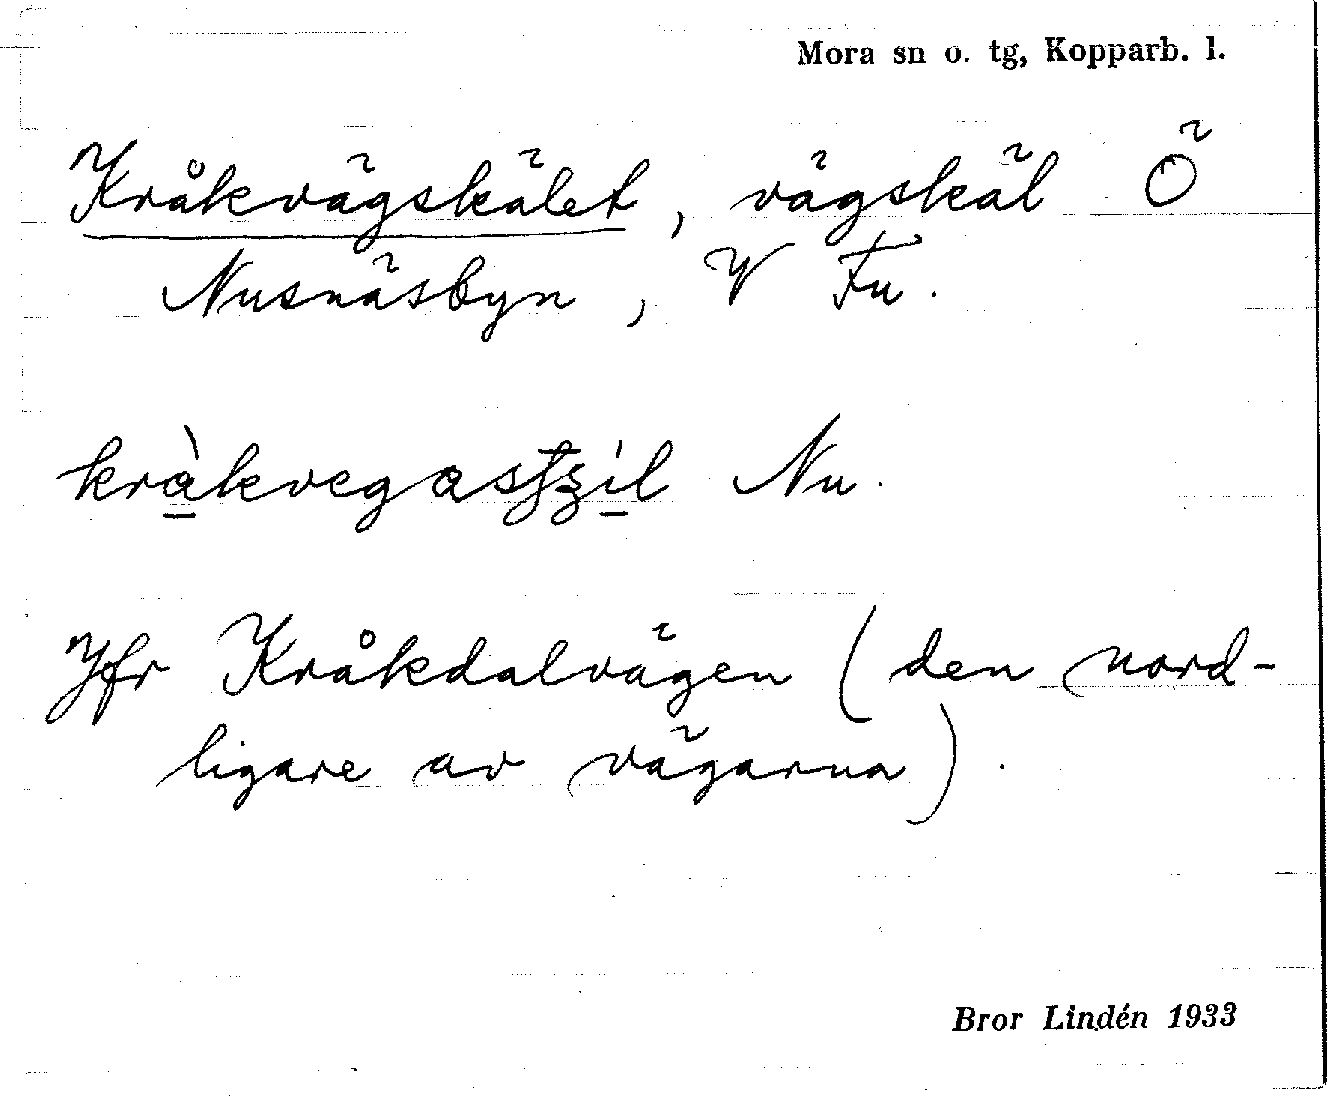 Mora sn o. tg, Kopparb. l.
Kråkvägskälet, vägskäl Ö
Nusnäsbyn, V Fu.
Nu.
Jfr Kråkdalvägen (den nord-
ligare av vägarna).
Bror Lindén 1933